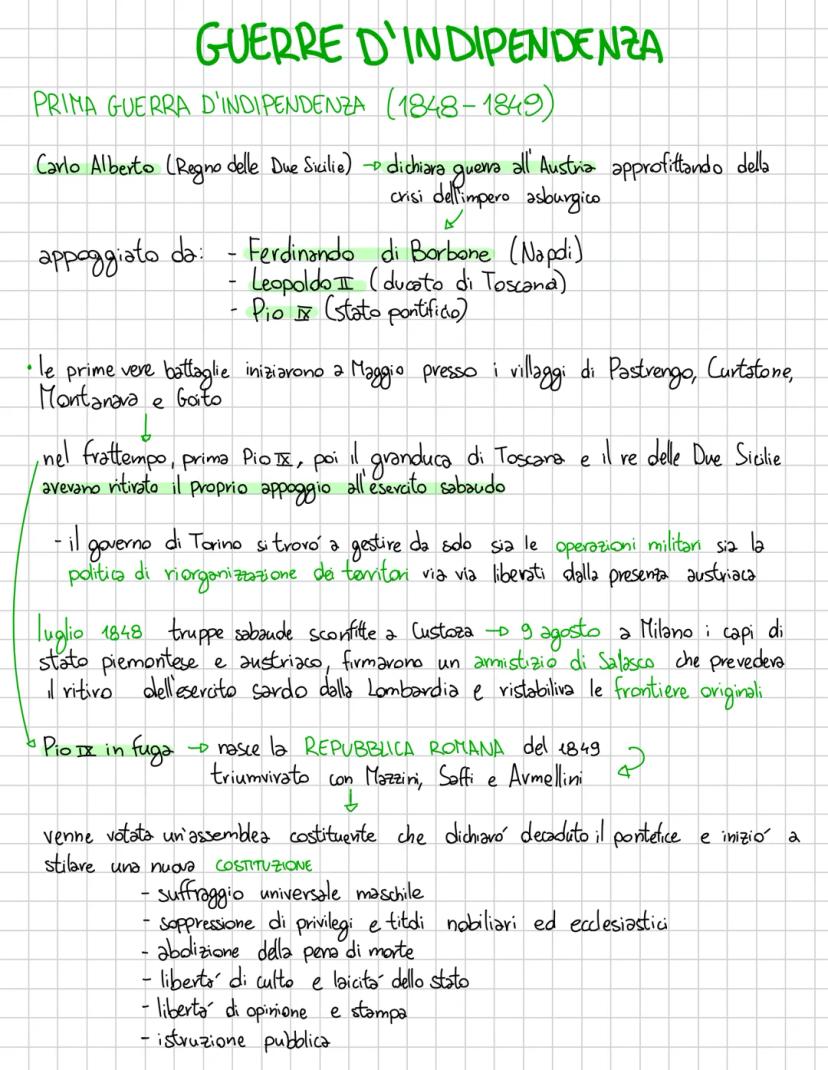 GUERRE D'INDIPENDENZA
PRIMA GUERRA D'INDIPENDENZA (1848-1849)
Carlo Alberto (Regno delle Due Sicilie) → dichiara guerra all'Austria approfittando della
crisi dell'impero asburgico
appoggiato da: - Ferdinando di Borbone (Napoli)
- Leopoldo II (ducato di Toscana)
- Pio IX (stato pontificio)
• le prime vere battaglie iniziarono a Maggio presso i villaggi di Pastrengo, Curtatone,
Montanara e Goito
nel frattempo, prima Pio IX, poi il granduca di Toscana e il re delle Due Sicilie
avevano ritirato il proprio appoggio all'esercito sabaudo
- il governo di Torino si trovó a gestire da solo sia le operazioni militari sia la
politica di riorganizzazione dei territori via via liberati dalla presenza austriaca
luglio 1848 truppe sabaude sconfitte a Custoza → 9 agosto a Milano i capi di
stato piemontese e austriaco, firmarono un armistizio di Salasco che prevedeva
il ritiro dell'esercito sardo dalla Lombardia e ristabiliva le frontiere originali
Pio IX in fuga → nasce la REPUBBLICA ROMANA del 1849
triumvirato con Mazzini, Saffi e Armellini
venne votata un'assemblea costituente che dichiaró decaduto il pontefice e inizió a
stilare una nuova COSTITUZIONE
- suffraggio universale maschile
- soppressione di privilegi e titoli nobiliari ed ecclesiastici
- abolizione della pena di morte
- libertá di culto e laicitá dello stato
- libertá di opinione e stampa
- istruzione pubblica